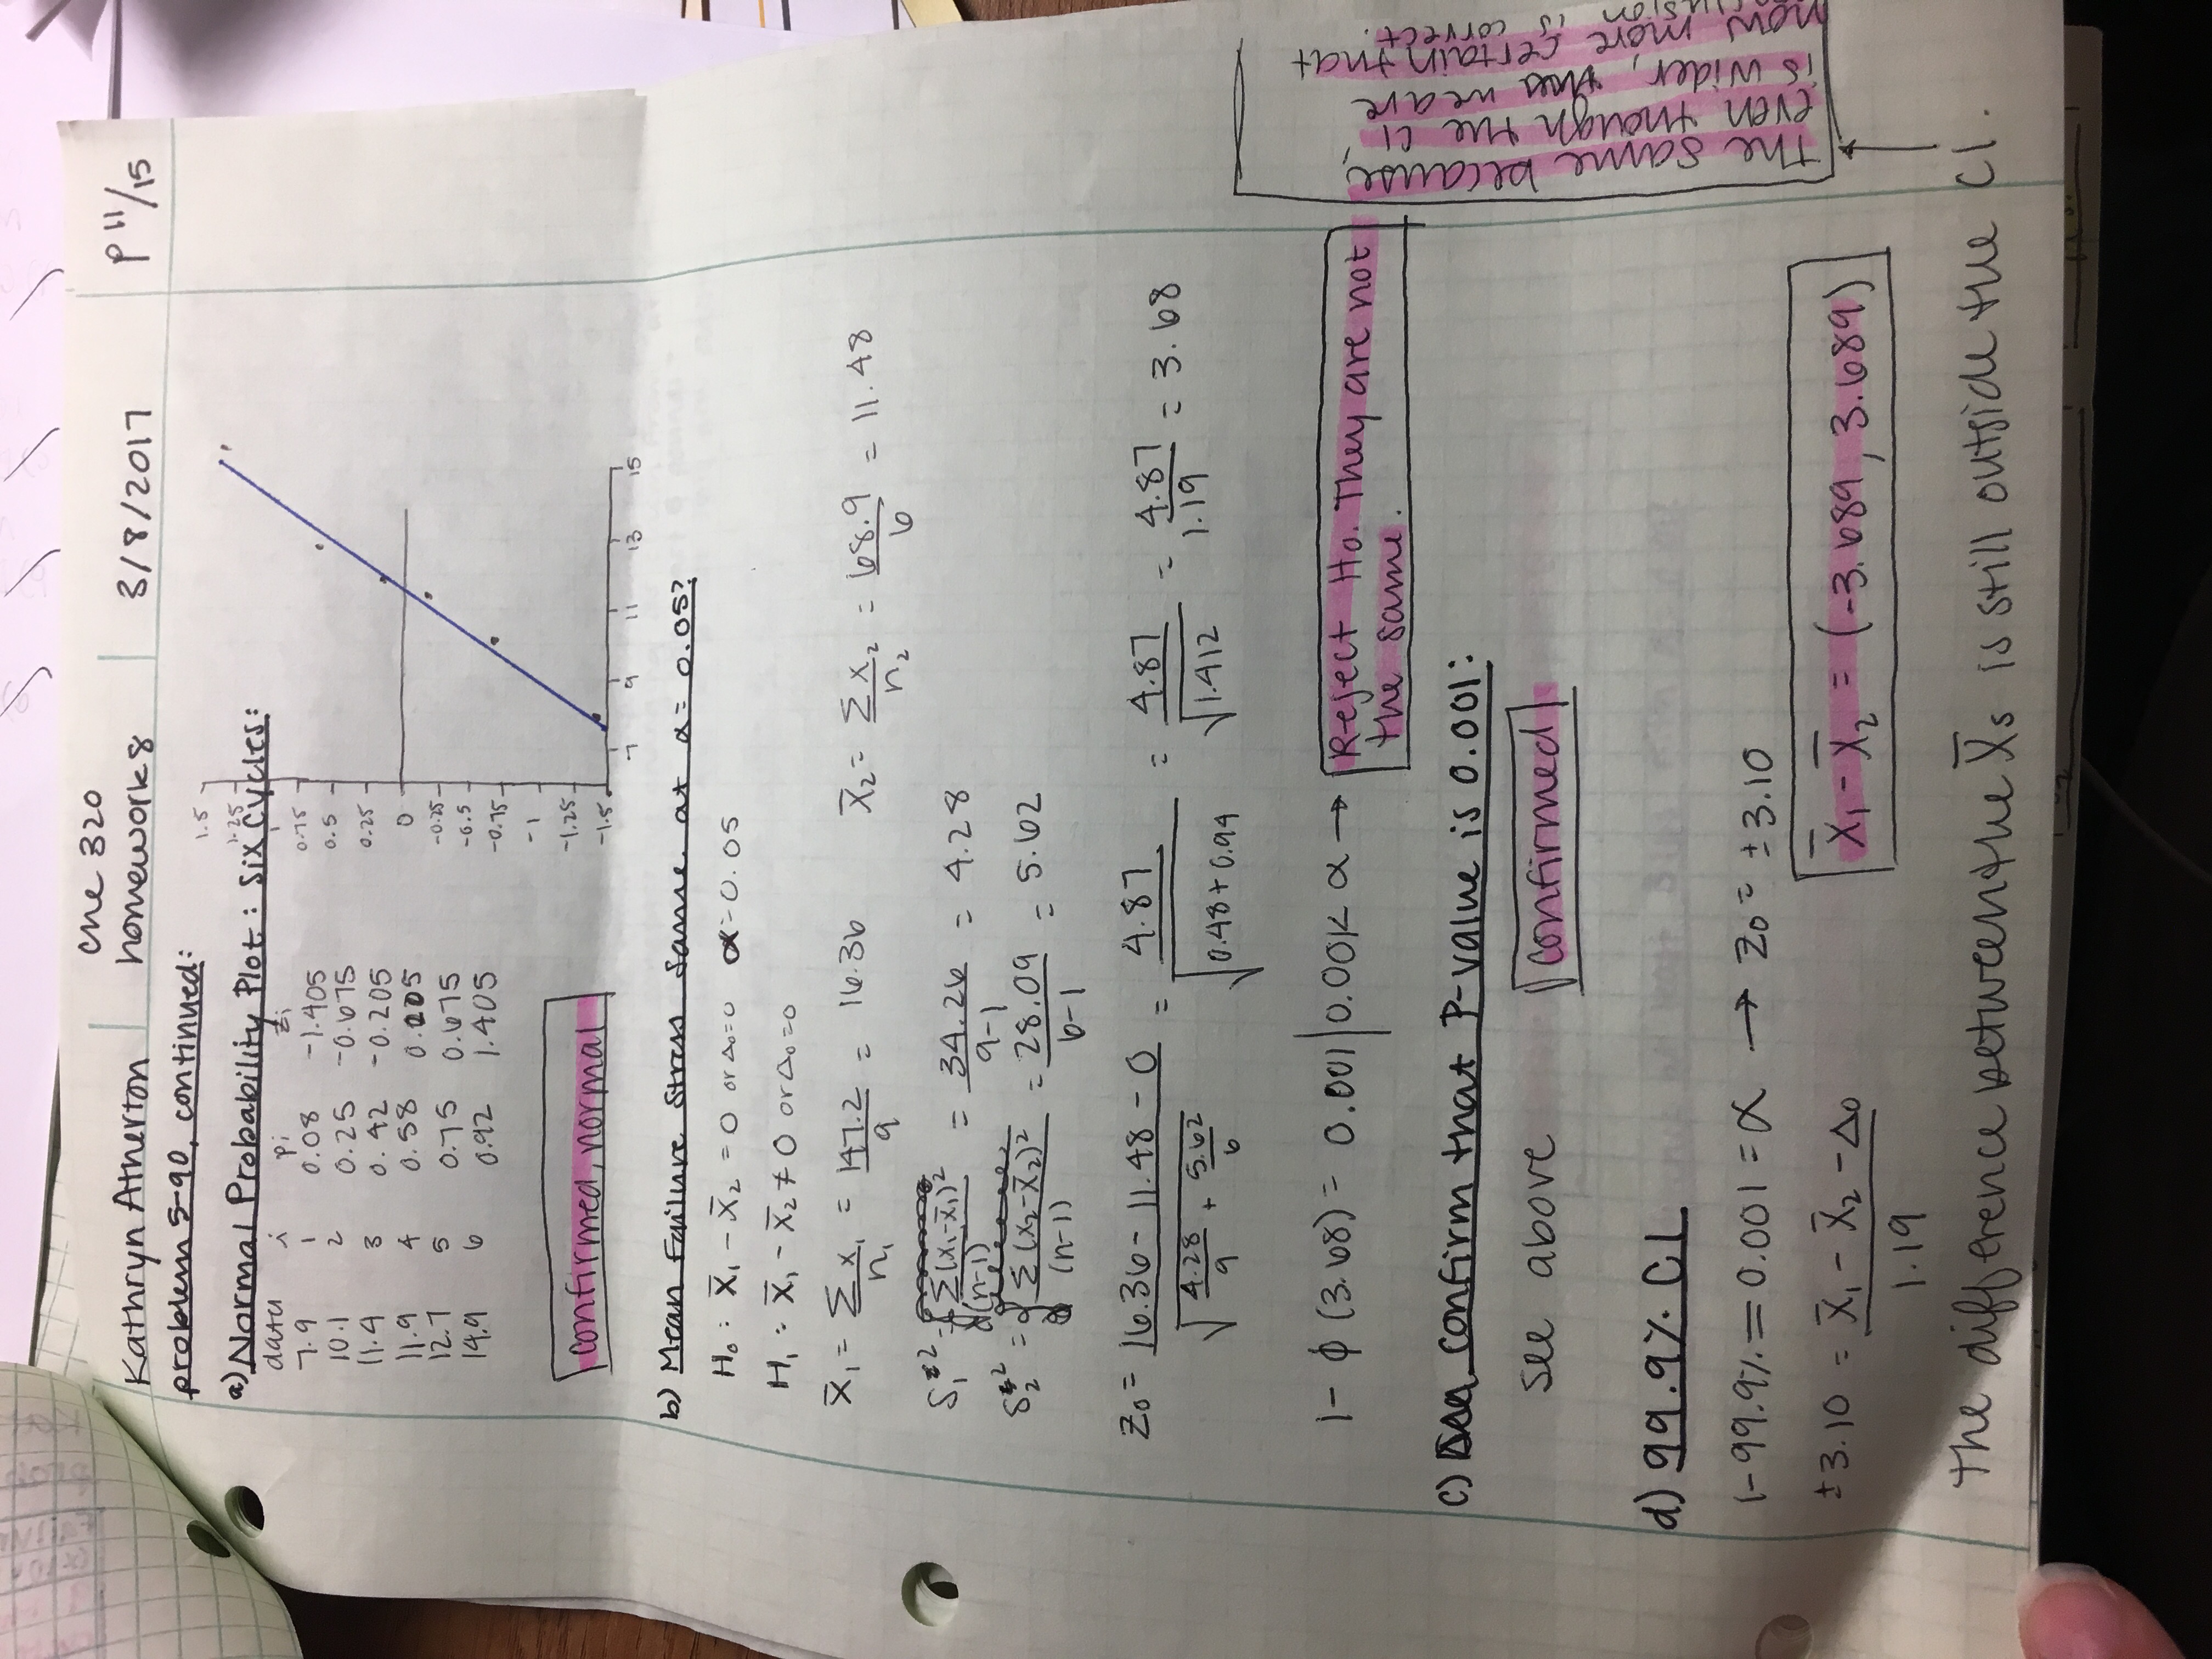 Kathryn Atherton
che 320
homework 8
3/8/2017
p 11/15
problem 5-90, continued:
a) Normal Probability Plot: Six Cycles:
data i pi zi
7.9 1 0.08 -1.405
10.1 2 0.25 -0.675
11.4 3 0.42 -0.205
11.9 4 0.58 0.205
12.7 5 0.75 0.675
14.9 6 0.92 1.405
1.5
1.25
1
0.75
0.5
0.25
0
-0.25
-0.5
-0.75
-1
-1.25
-1.5
7 9 11 13 15
confirmed, normal
b) Mean Failure Stress Same at α = 0.05?
H₀ : X̄₁ - X̄₂ = 0 or Δ₀=0 α=0.05
H₁ : X̄₁ - X̄₂ ≠ 0 or Δ₀=0
X̄₁ = Σx₁/n₁ = 147.2/9 = 16.36 X̄₂ = Σx₂/n₂ = 68.9/6 = 11.48
S₁² = Σ(x₁-x̄₁)²/(n-1) = 34.26/9-1 = 4.28
S₂² = Σ(x₂-x̄₂)²/(n-1) = 28.09/6-1 = 5.62
Z₀ = 16.36 - 11.48 - 0/√(4.28/9 + 5.62/6) = 4.87/√(0.48 + 0.94) = 4.87/√1.412 = 4.87/1.19 = 3.68
1 - ϕ (3.68) = 0.001 | 0.001< α → Reject H₀. They are not
the same.
c) confirm that P-value is 0.001:
see above confirmed
d) 99.9% CI
1-99.9% = 0.001 = α → Z₀ = ±3.10
±3.10 = X̄₁ - X̄₂ - Δ₀/1.19
X̄₁ - X̄₂ = (-3.689, 3.689)
the difference between the X̄s is still outside the CI.
The same because,
even though the CI
is wider, we are
now more certain that
is correct.